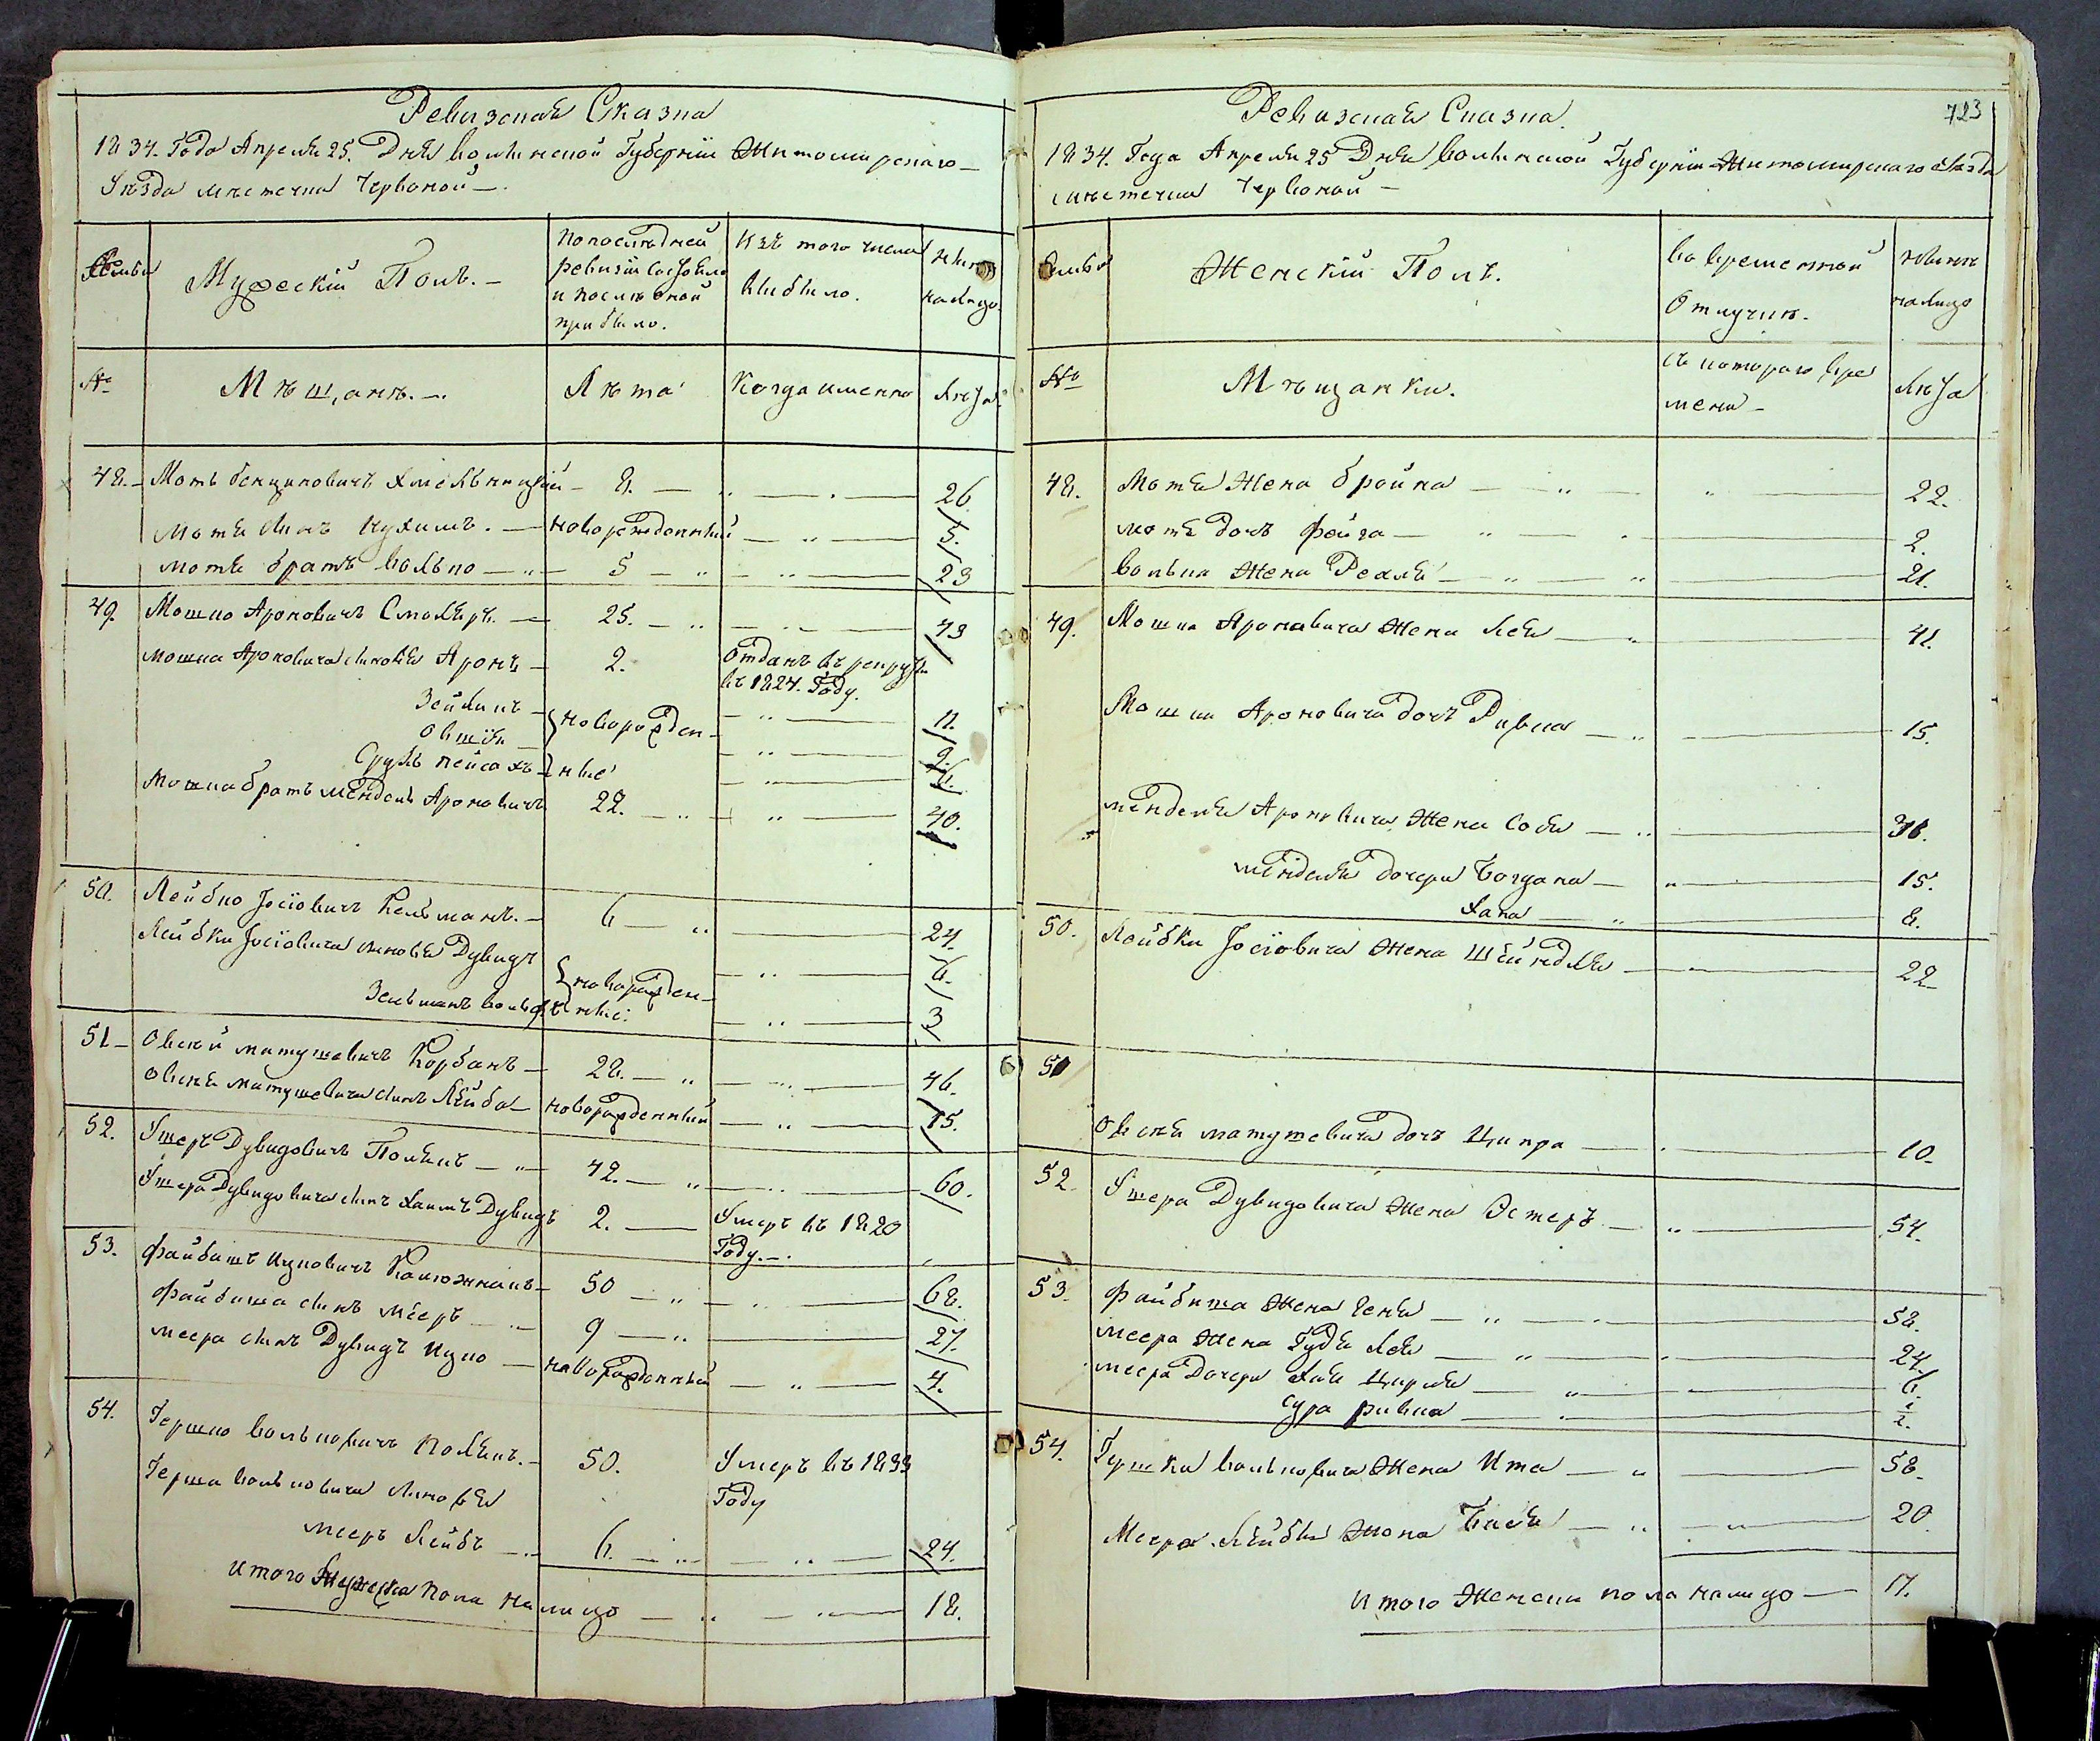 Ревизская Сказка
1834. Года Апреля 25. Дня Волынской Губерніи Житомирскаго
Уѣзда мѣстечка Червоной
Семьи
Мужескій Полъ.
По последней
ревизіи состояло
и после оной
прибыло.
Изъ того числа
выбыло.
Нынѣ
налицо.
№
Мѣщанѣ.
Лѣта
Когда именно
Лѣта.
48. Моть Бенционовичъ Хмельницкій 8. 26.
Мотя сынъ Нухимъ. новорожденный 5.
Мотя братъ Волько 5 23
49. Мошко Ароновичъ Смоляръ. 25. 43
Мошка Ароновича сыновья Аронъ 2. Отданъ въ рекруты
въ 1827. Году.
Зейликъ 11.
Овшія новорожден- 9.
Сруль Пейсахъ ные
Мошка братъ Мендель Ароновичъ 22. 40.
50. Лейбко Іосіовичъ Кельманъ. 6 24.
Лейбки Іосіовича сыновья Дувидъ новорожден- 6.
Зельманъ Вольфъ ные 3
51. Овсей Матушевичъ Корбанъ 28. 46.
Овсея Матушевича сынъ Лейба новорожденный 15.
52. Ушеръ Дувидовичъ Полякъ 42. 60.
Ушера Дувидовича сынъ Хаимъ Дувидъ 2. Умеръ въ 1820
Году.
53. Файбишъ Ицковичъ 50 68.
Файбиша сынъ Мееръ 9 27.
Меера сынъ Дувидъ Ицко новорожденный 4.
54. Гершко Вольковичъ Полякъ. 50. Умеръ въ 1833
Году
Герша Вольковича сыновья
Мееръ Лейбъ 6. 24.
Итого Мужеска пола налицо 18.
723
Ревизская Сказка
1834. Года Апреля 25 Дня Волынской Губерніи Житомирскаго Уѣзда
мѣстечка Червоной
Семьи
Женскій Полъ.
Во временной
Отлучкѣ.
Нынѣ
налицо
№
Мѣщанки.
Съ котораго вре
мени
Лѣта
48. Мотя Жена Бройна 22.
Мотя дочь Фейга 2.
Волька Жена Рехля 21.
49. Мошка Ароновича Жена Лея 41.
Мошка Ароновича дочь Ривка 15.
Менделя Ароновича Жена Сося
Менделя дочери Богдана 15.
Хана 8.
50. Лейбки Іосіовича Жена Шейндля 22
51
Овсея Матушевича дочь Ципра 10.
52. Ушера Дувидовича Жена Эстеръ 54.
53. Файбиша Жена Геня 58.
Меера Жена Гудя Лея 24.
Меера дочери Хая Цирля 6.
Сура Ривка
54. Гершка Вольковича Жена Ита 58.
Меера Лейбы Жена Бася 20.
Итого Женска пола налицо 17.